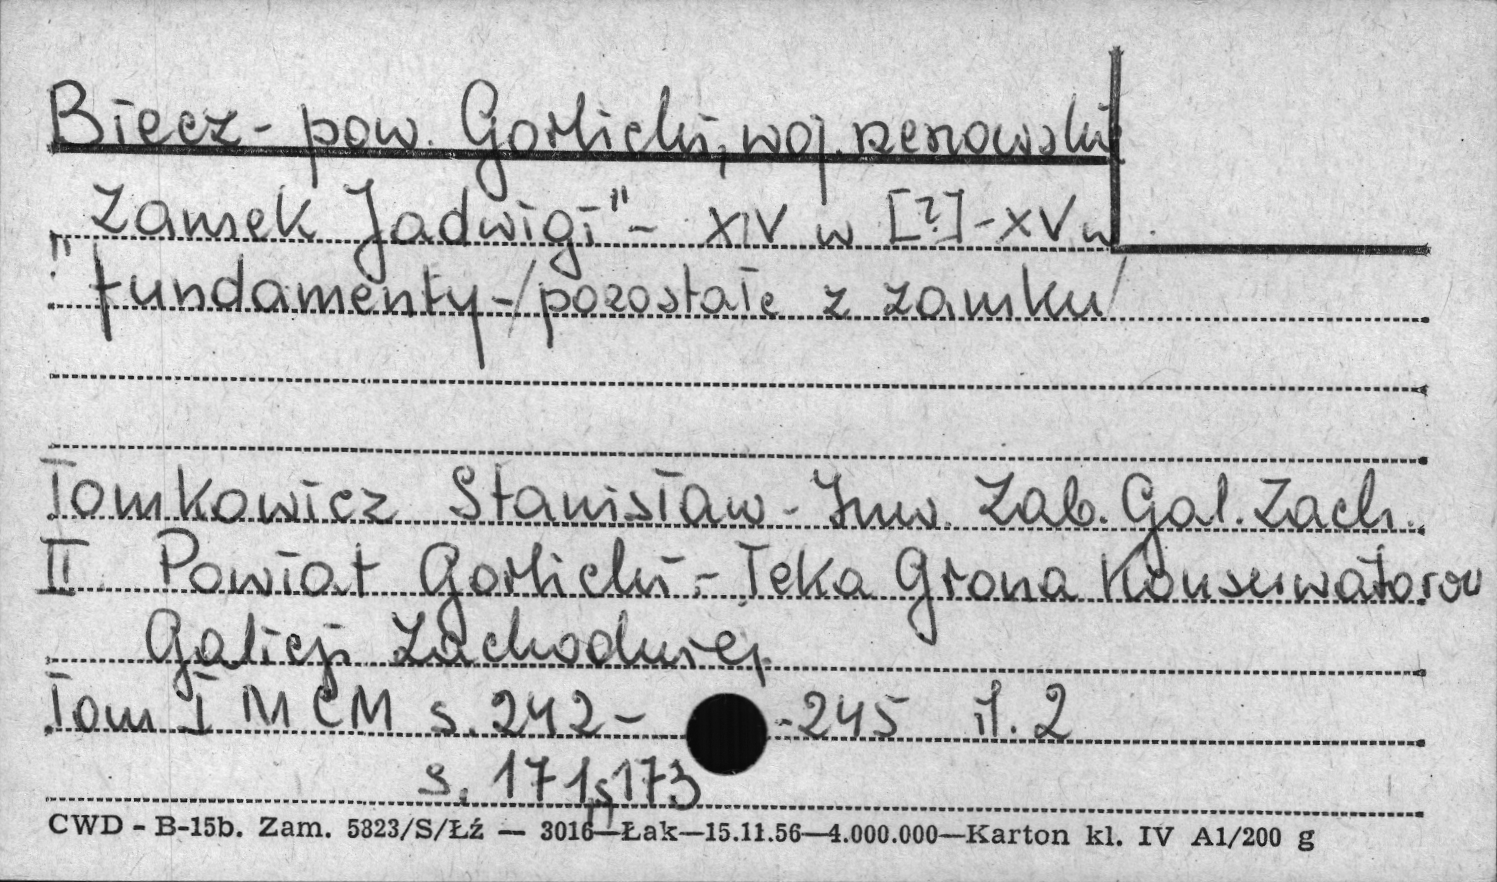 Biecz - pow. Gorlicki, woj. rzeszowskie
"Zamek Jadwigi" - XIV w [?] - XV w
fundamenty - /pozostałe z zamku/
Tomkowicz Stanisław - Inw. Zab. Gal. Zach.
II Powiat Gorlicki, - Teka Grona Konserwatorów
Galicji Zachodniej.
Tom I MCM s. 242 - - 245 il. 2
s. 171, 173
CWD - B-15b. Zam. 5823/S/Łź — 3016—Łak—15.11.56—4.000.000—Karton kl. IV A1/200 g